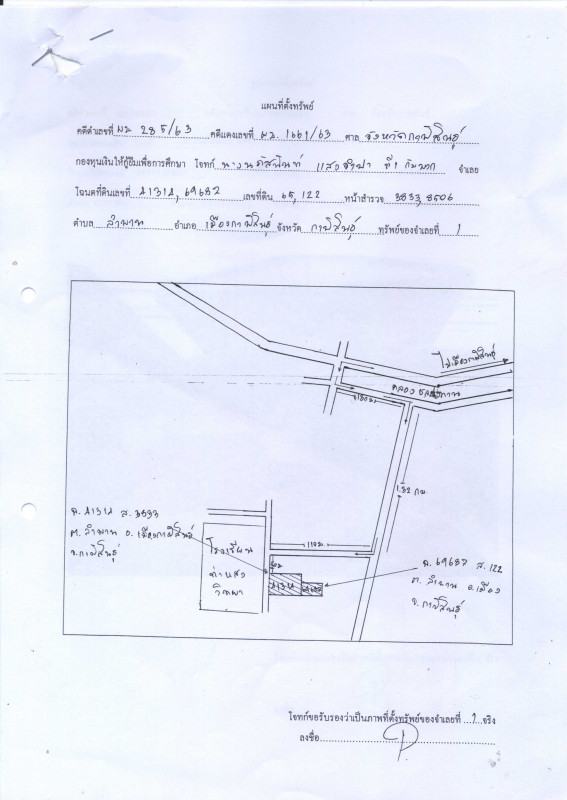 แผนที่ตั้งทรัพย์
คดีดำเลขที่ ผบ. 285/63 คดีแดงเลขที่ ผบ. 1661/63 ศาล จังหวัดกาฬสินธุ์
กองทุนเงินให้กู้ยืมเพื่อการศึกษา โจทก์ ที่1 กับพวก จำเลย
โฉนดที่ดินเลขที่ 41314, 69687 เลขที่ดิน 65, 122 หน้าสำรวจ 3833, 8506
ตำบล ลำพาน อำเภอ เมืองกาฬสินธุ์ จังหวัด กาฬสินธุ์ ทรัพย์ของจำเลยที่ 1
ไปเมืองกาฬสินธุ์
คลองชลประทาน
1.32 กม.
ฉ. 41314 ส. 3833
ต. ลำพาน อ. เมืองกาฬสินธุ์
จ. กาฬสินธุ์
110 ม.
โรงเรียน
วิทยา
41314
69687
ฉ. 69687 ส. 122
ต. ลำพาน อ. เมือง
จ. กาฬสินธุ์
โจทก์ขอรับรองว่าเป็นภาพที่ตั้งทรัพย์ของจำเลยที่ ...1...จริง
ลงชื่อ